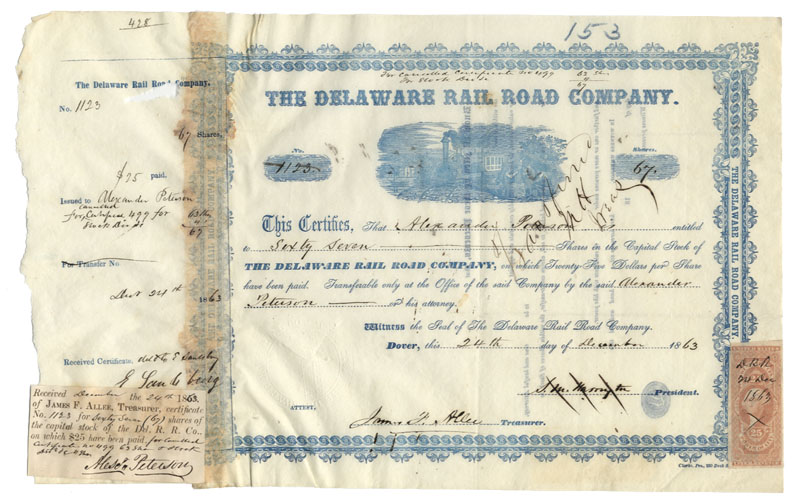 428
153
The Delaware Rail Road Company.
No. 1123
67 Shares,
$25 paid.
Issued to Alexander Peterson
cancelled
for Certificate 499 for 63 shs
Stock Div 4
67
For Transfer No.
Dect 24th 1863
Received Certificate,
Received December the 24th 1863.
of JAMES F. ALLEE, Treasurer, certificate
No. 1123 for Sixty Seven (67) shares of
the capital stock of the Del. R. R. Co.,
on which $25 have been paid. for Cancelled
Certificate no 499
Alexr Peterson
for Cancelled Certificate no 499 63 shs
for Stock Div 4
67
THE DELAWARE RAIL ROAD COMPANY.
No. 1123
Shares. 67.
This Certifies, That Alexander Peterson is entitled
to Sixty Seven Shares in the Capital Stock of
THE DELAWARE RAIL ROAD COMPANY, on which Twenty-Five Dollars per Share
have been paid. Transferable only at the Office of the said Company by the said Alexander
Peterson or his attorney.
Witness the Seal of The Delaware Rail Road Company.
Dover, this 24th day of December 1863
President.
ATTEST,
James F. Allee Treasurer.
THE DELAWARE RAIL ROAD COMPANY.
D.R.R.
24 Dec
1863
X
25